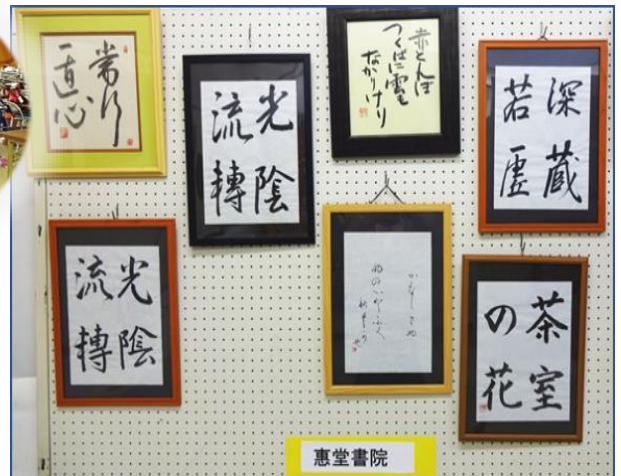 常行
一直心
光陰
流轉
赤とんぼ
つくばに雲も
なかりけり
深蔵
若虚
光陰
流轉
茶室
の花
惠堂書院